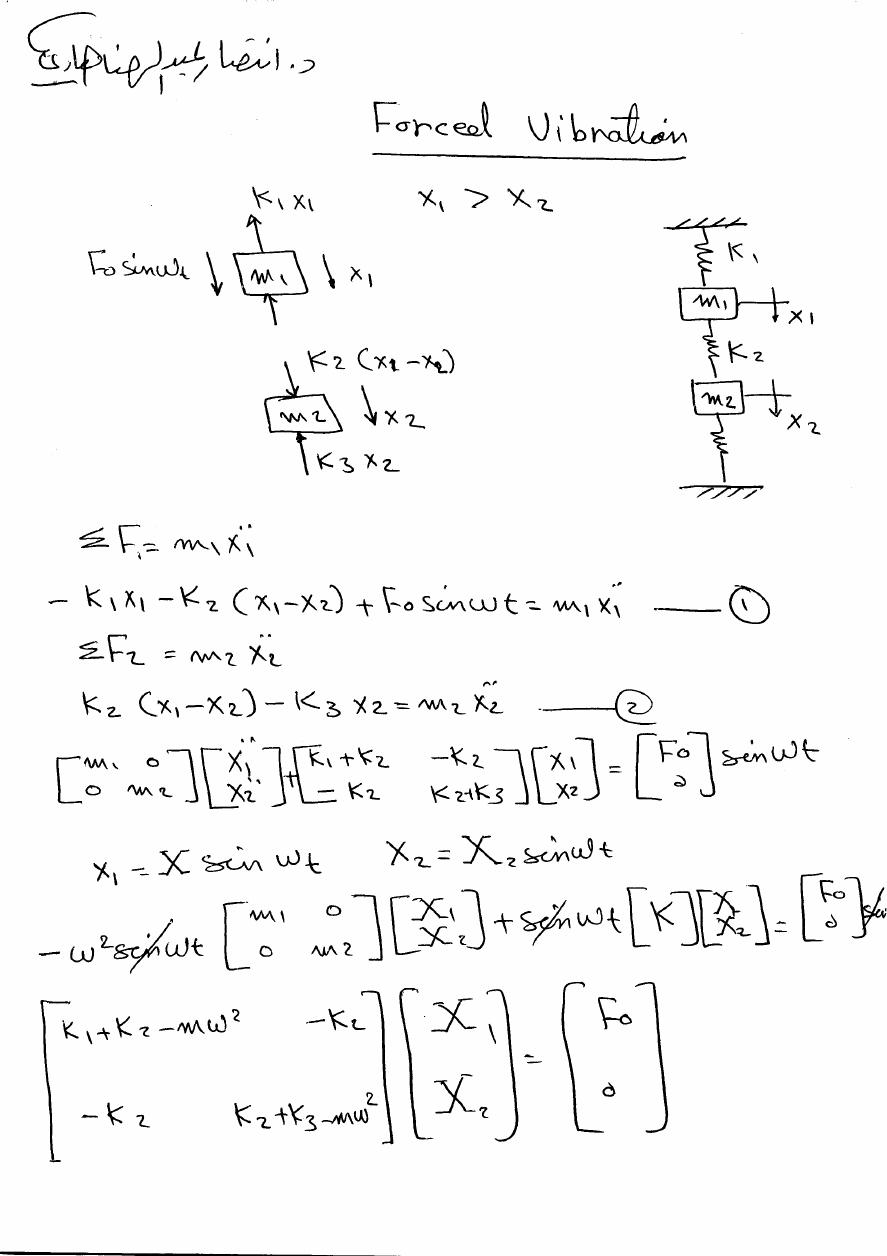 د. انتصار
Forced Vibration
K₁ x₁
x₁ > x₂
Fo sinωt
m₁
x₁
K₁
m₁
x₁
K₂ (x₁ - x₂)
K₂
m₂
x₂
m₂
x₂
K₃ x₂
ΣF₁ = m₁ẍ₁
- K₁x₁ - K₂ (x₁ - x₂) + Fo sinωt = m₁ẍ₁ —— ①
ΣF₂ = m₂ ẍ₂
K₂ (x₁ - x₂) - K₃ x₂ = m₂ ẍ₂ —— ②
[m₁ 0; 0 m₂] [ẍ₁; ẍ₂] + [K₁+K₂ -K₂; -K₂ K₂+K₃] [x₁; x₂] = [Fo; 0] sinωt
x₁ = X sin ωt x₂ = X₂ sinωt
- ω² sinωt [m₁ 0; 0 m₂] [X₁; X₂] + sinωt [K] [X; X₂] = [Fo; 0]
[K₁+K₂-mω² -K₂; -K₂ K₂+K₃-mω²] [X₁; X₂] = [Fo; 0]